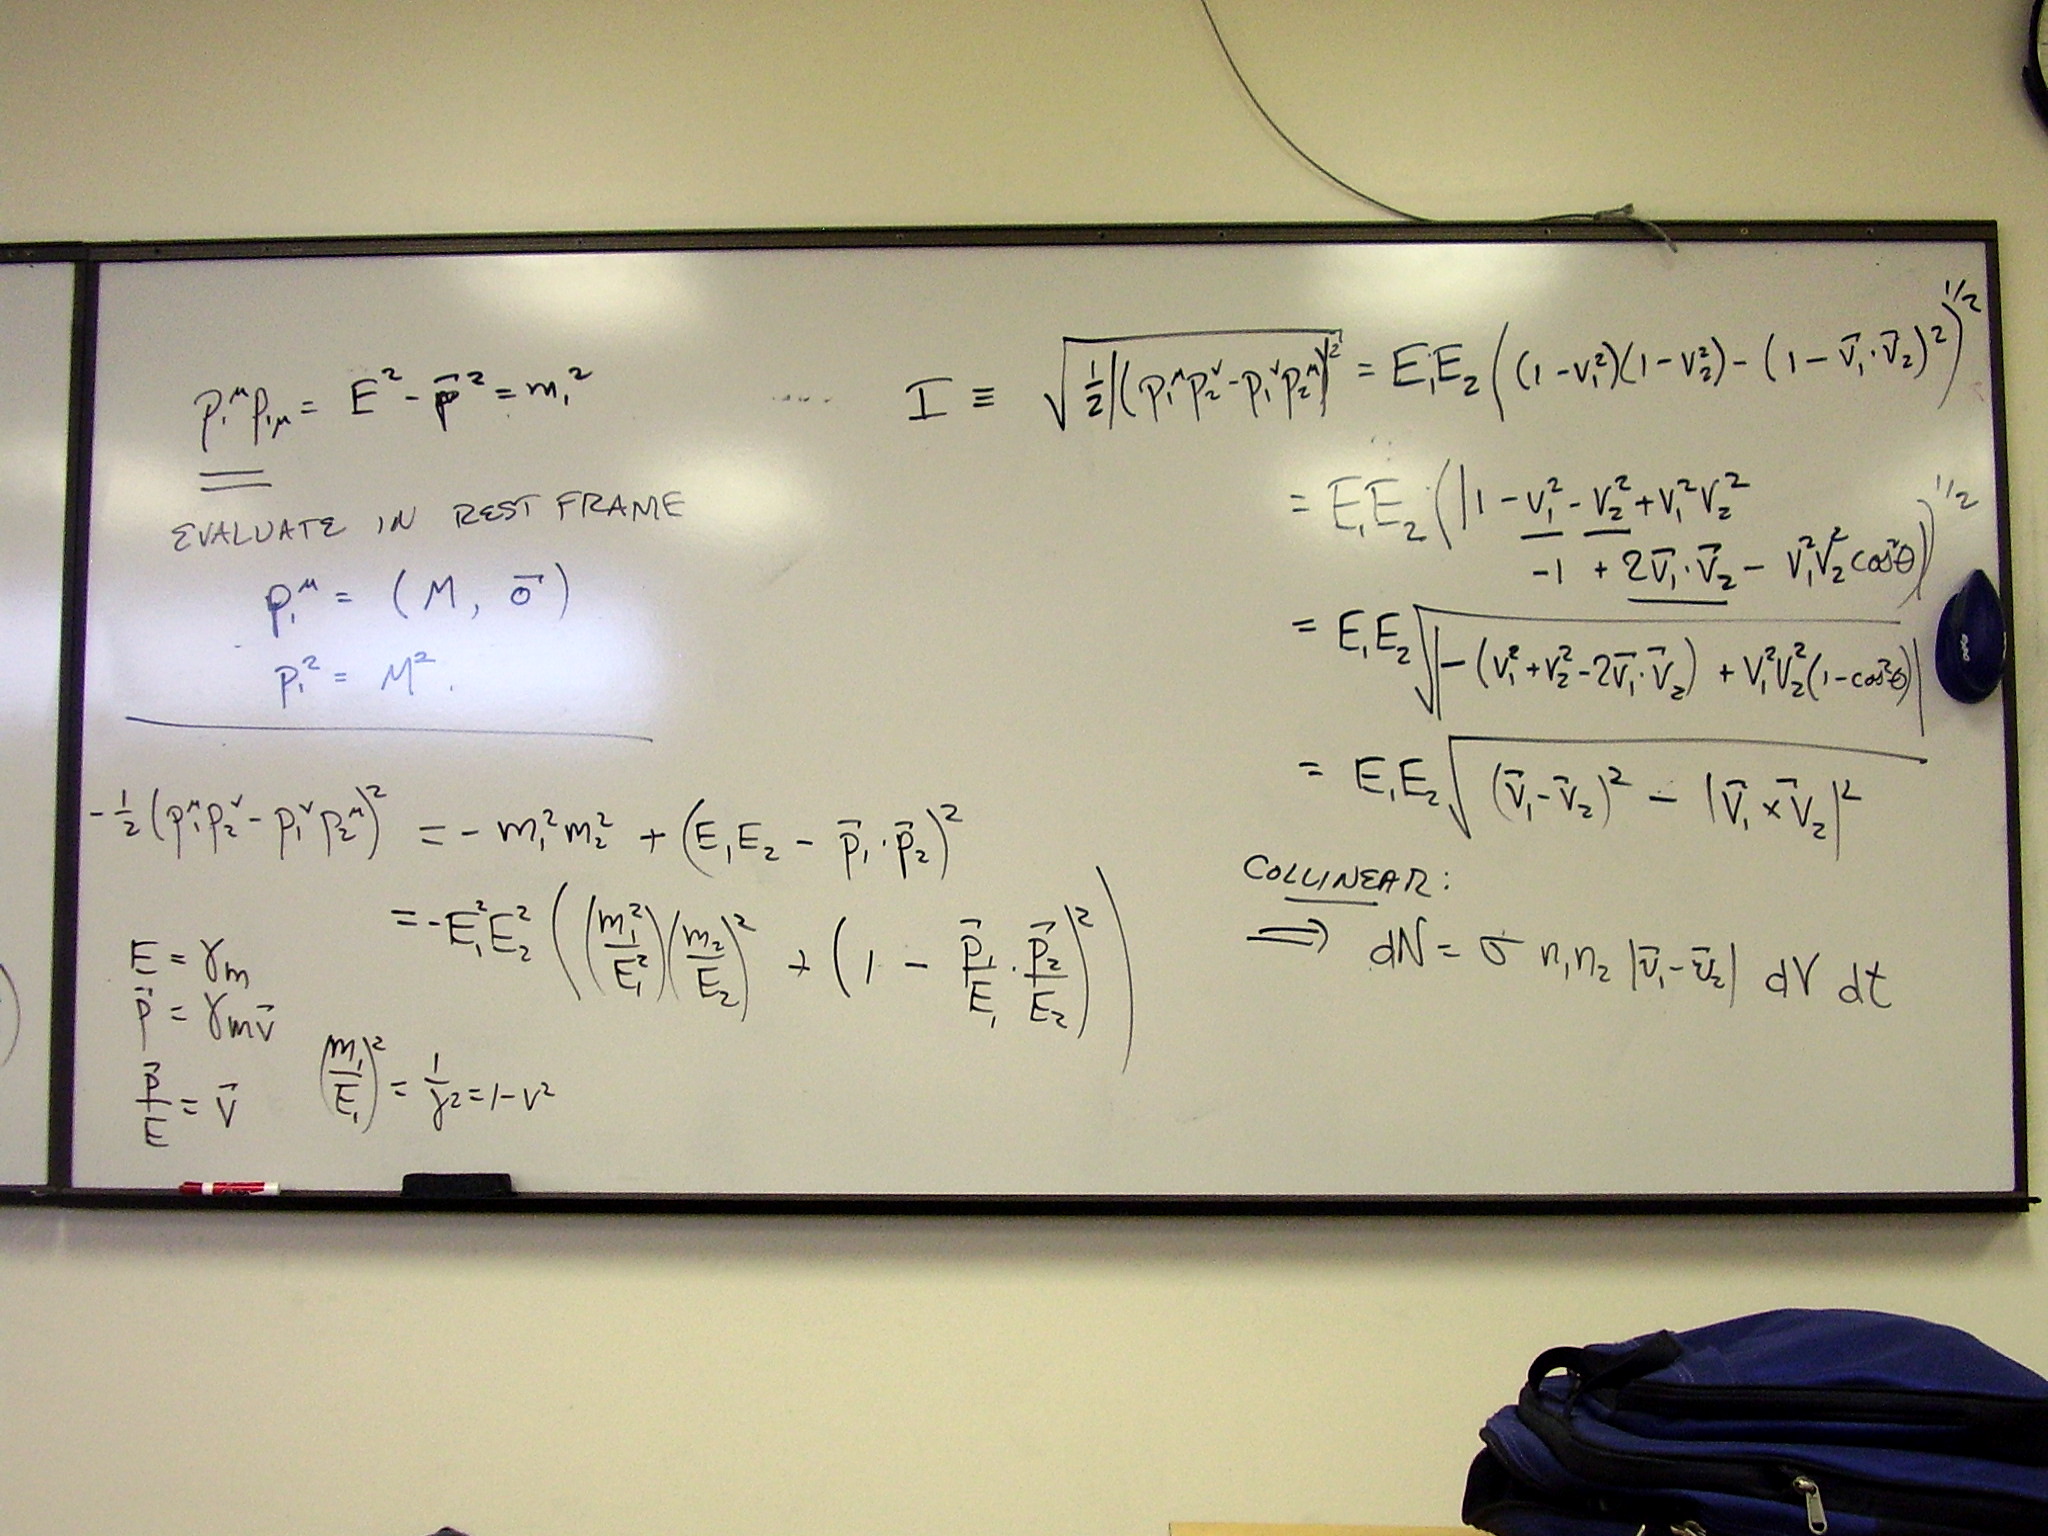 p₁^μ p₁μ = E² - p⃗² = m₁²
EVALUATE IN REST FRAME
p₁^μ = (M, 0⃗)
p₁² = M².
-½(p₁^μ p₂^ν - p₁^ν p₂^μ)² = -m₁²m₂² + (E₁E₂ - p⃗₁·p⃗₂)²
= -E₁²E₂² ((m₁²/E₁²)(m₂/E₂)² + (1 - p⃗₁/E₁ · p⃗₂/E₂)²)
E = γm
p⃗ = γmv⃗
p⃗/E = v⃗
(m₁/E₁)² = 1/γ² = 1-v²
I ≡ √(½|(p₁^μ p₂^ν - p₁^ν p₂^μ)|²) = E₁E₂((1-v₁²)(1-v₂²) - (1-v⃗₁·v⃗₂)²)^1/2
= E₁E₂(|1 - v₁² - v₂² + v₁²v₂²
-1 + 2v⃗₁·v⃗₂ - v₁²v₂²cos²θ|)^1/2
= E₁E₂√|-(v₁² + v₂² - 2v⃗₁·v⃗₂) + v₁²v₂²(1-cos²θ)|
= E₁E₂√((v⃗₁-v⃗₂)² - |v⃗₁×v⃗₂|²)
COLLINEAR:
⟹ dN = σ n₁n₂ |v⃗₁-v⃗₂| dV dt